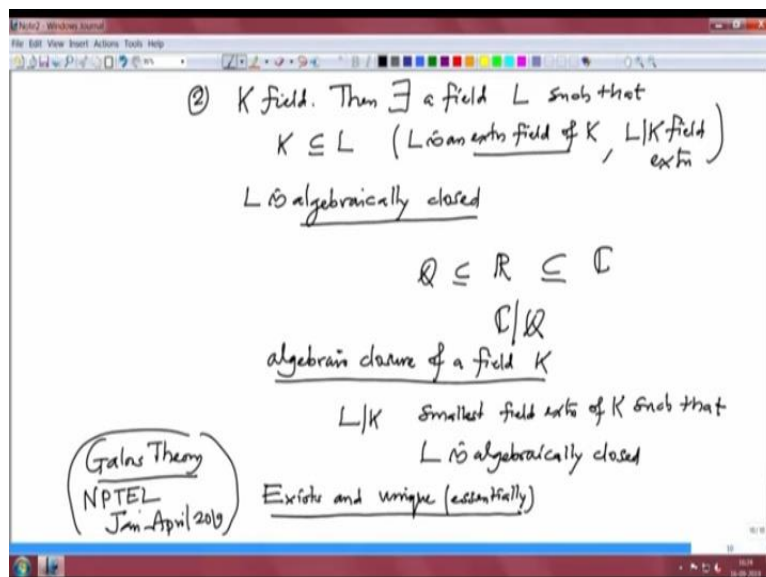 Note2 - Windows Journal
File Edit View Insert Actions Tools Help
② K field. Then ∃ a field L such that
K ⊆ L (L is an extn field of K, L|K field extn)
L is algebraically closed
ℚ ⊆ ℝ ⊆ ℂ
ℂ|ℚ
algebraic closure of a field K
L|K Smallest field extn of K such that
L is algebraically closed
Galois Theory
NPTEL
Jan-April 2019
Exists and unique (essentially)
10